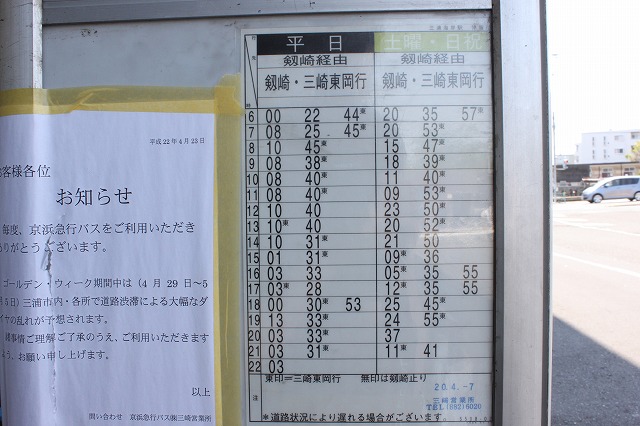 平成22年4月23日
お客様各位
お知らせ
毎度、京浜急行バスをご利用いただき
ありがとうございます。
ゴールデン・ウィーク期間中は（4月29日～5
月5日）三浦市内・各所で道路渋滞による大幅なダ
イヤの乱れが予想されます。
事情ご理解ご了承のうえ、ご利用いただきます
よう、お願い申し上げます。
以上
問い合わせ 京浜急行バス㈱三崎営業所
平日 土曜・日祝
剱崎経由 剱崎経由
剱崎・三崎東岡行 剱崎・三崎東岡行
6 00 22 44東 20 35 57東
7 08 25 45東 20 53東
8 10 45東 15 47東
9 08 38東 18 39東
10 08 40東 11 40東
11 08 40東 09 53東
12 10 40 23 50東
13 10東 40 20 52東
14 10 31東 21 50
15 01 31東 09東 36
16 03 33 05東 35 55
17 03東 28 12東 35 55
18 00 30 53 25 45東
19 13 33東 24 55東
20 03 33東 37
21 03 31東 11東 41
22 03
東印＝三崎東岡行 無印は剱崎止り
注
＊道路状況により遅れる場合がございます
20.4.-7
三崎営業所
TEL(882)6020